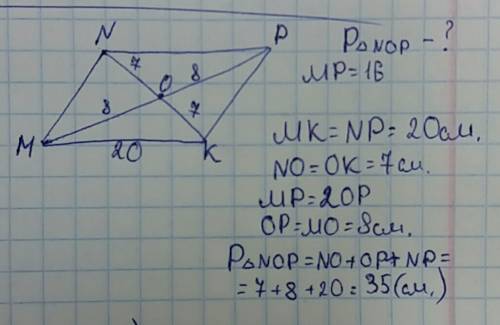 N
P
7
8
O
8
7
M
20
K
P△NOP - ?
MP=16
MK=NP=20см.
NO=OK=7см.
MP=2OP
OP=MO=8см.
P△NOP=NO+OP+NP=
=7+8+20=35(см.)